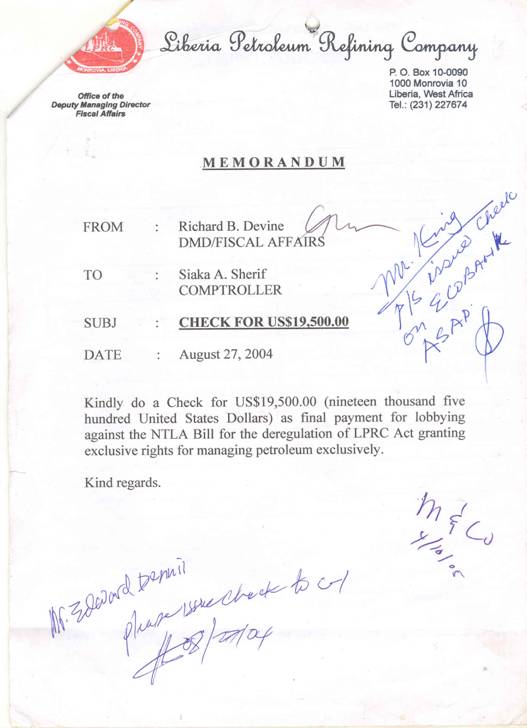 MONROVIA, LIBERIA
Liberia Petroleum Refining Company
P. O. Box 10-0090
1000 Monrovia 10
Liberia, West Africa
Tel.: (231) 227674
Office of the
Deputy Managing Director
Fiscal Affairs
MEMORANDUM
FROM : Richard B. Devine
DMD/FISCAL AFFAIRS
TO : Siaka A. Sherif
COMPTROLLER
SUBJ : CHECK FOR US$19,500.00
DATE : August 27, 2004
Mr. King
P/s issue check
on ECOBANK
ASAP.
Kindly do a Check for US$19,500.00 (nineteen thousand five
hundred United States Dollars) as final payment for lobbying
against the NTLA Bill for the deregulation of LPRC Act granting
exclusive rights for managing petroleum exclusively.
Kind regards.
M & Co
Mr. Edward
please issue check to